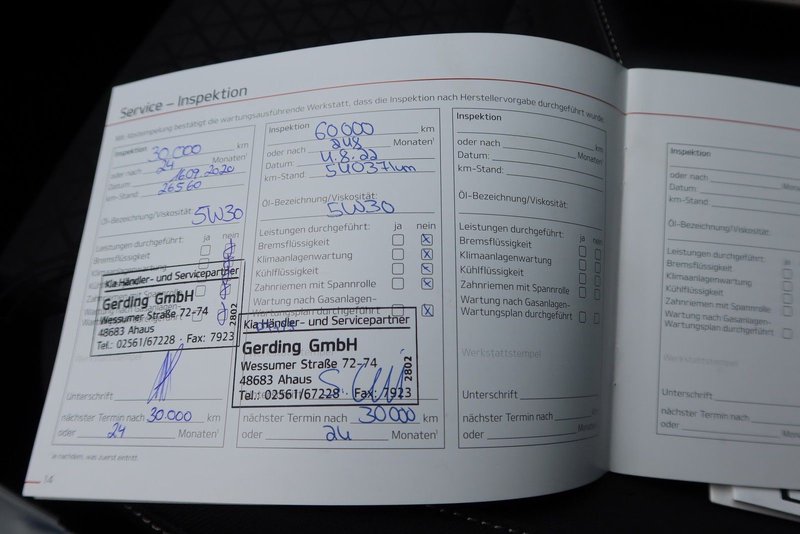 Service – Inspektion
Mit Abstempelung bestätigt die wartungsausführende Werkstatt, dass die Inspektion nach Herstellervorgabe durchgeführt wurde.
Inspektion 30.000 km
oder nach 24 Monaten¹
Datum: 16.09.2020
km-Stand: 26560
Öl-Bezeichnung/Viskosität:
5W30
Leistungen durchgeführt: ja nein
Bremsflüssigkeit
Klimaanlagenwartung
Kühlflüssigkeit
Kia Händler- und Servicepartner
Gerding GmbH
Wessumer Straße 72-74
48683 Ahaus
Tel.: 02561/67228 · Fax: 7923
2802
Unterschrift
nächster Termin nach 30.000 km
oder 24 Monaten¹
Inspektion 60000 km
oder nach Monaten¹
Datum: 4.8.22
km-Stand: 54037km
Öl-Bezeichnung/Viskosität:
5W30
Leistungen durchgeführt: ja nein
Bremsflüssigkeit
Klimaanlagenwartung
Kühlflüssigkeit
Zahnriemen mit Spannrolle
Wartung nach Gasanlagen-
Wartungsplan durchgeführt
Kia Händler- und Servicepartner
Gerding GmbH
Wessumer Straße 72-74
48683 Ahaus
Tel.: 02561/67228 · Fax: 7923
2802
nächster Termin nach 30000 km
oder 24 Monaten¹
Inspektion km
oder nach Monaten¹
Datum:
km-Stand:
Öl-Bezeichnung/Viskosität:
Leistungen durchgeführt: ja nein
Bremsflüssigkeit
Klimaanlagenwartung
Kühlflüssigkeit
Zahnriemen mit Spannrolle
Wartung nach Gasanlagen-
Wartungsplan durchgeführt
Werkstattstempel
Unterschrift
nächster Termin nach km
oder Monaten¹
¹je nachdem, was zuerst eintritt.
14
Inspektion
oder nach
Datum:
km-Stand:
Öl-Bezeichnung/Viskosität:
Leistungen durchgeführt:
Bremsflüssigkeit
Klimaanlagenwartung
Kühlflüssigkeit
Zahnriemen mit Spannrolle
Wartung nach Gasanlagen-
Wartungsplan durchgeführt
Werkstattstempel
Unterschrift
nächster Termin nach
oder